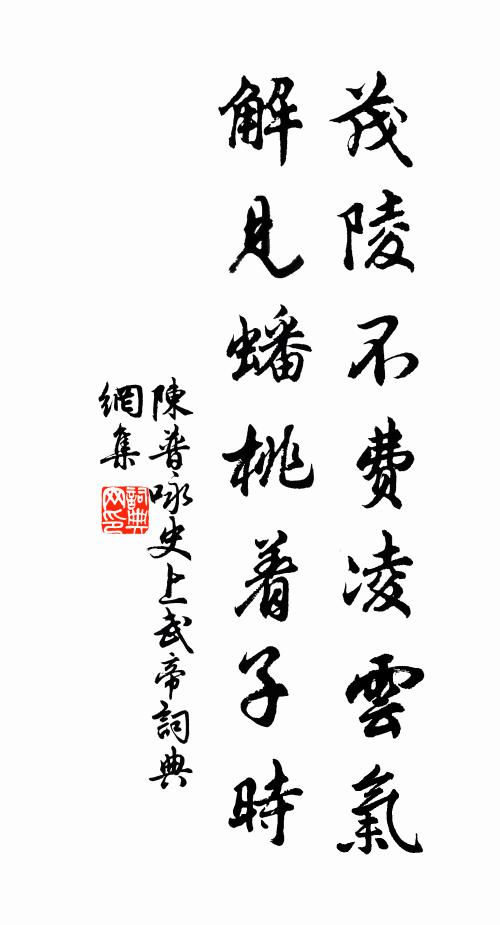 茂陵不费凌雲氣
解見蟠桃着子時
陳普咏史上武帝詞典
網集
詞典
网印